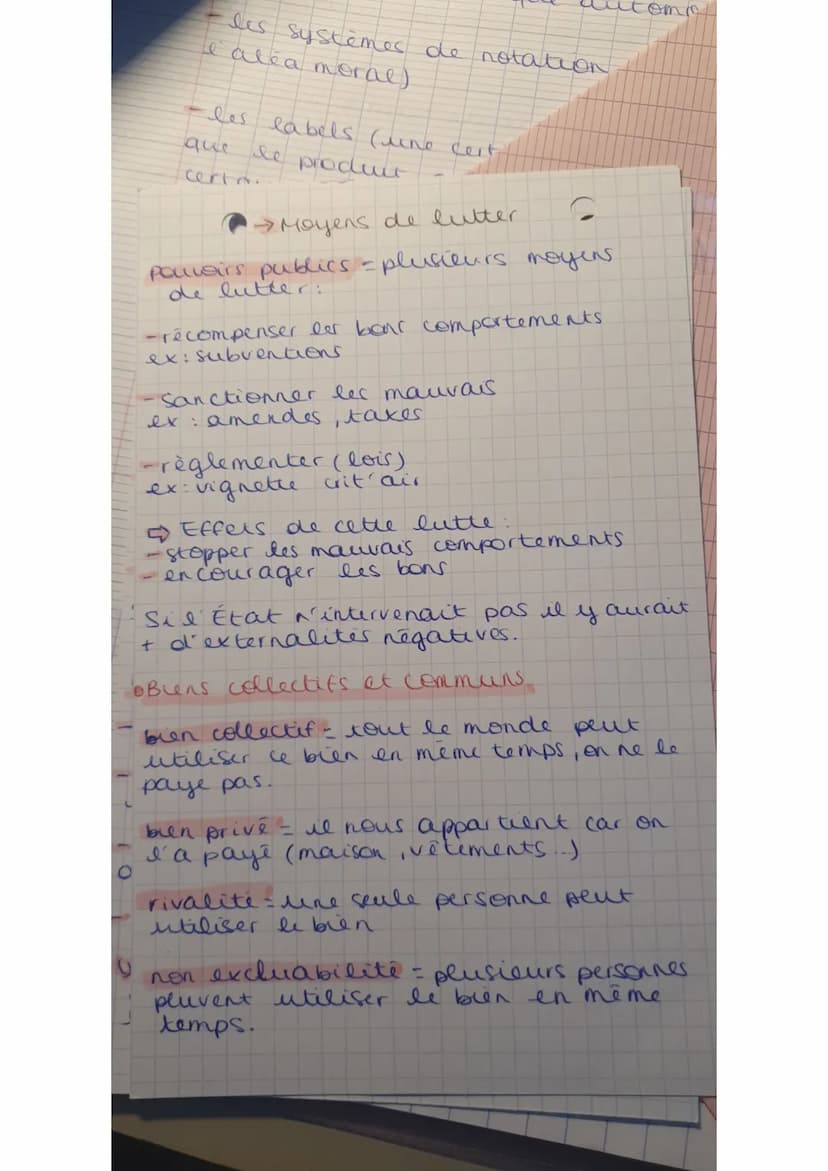 automa
- les systèmes de notation
l'aléa moral)
- les labels (une cert
que le produit
certa
→ Moyens de lutter
pouvoirs publics = plusieurs moyens
de lutter :
- récompenser les bons comportements
ex : subventions
- sanctionner les mauvais
ex : amendes, taxes
- règlementer (lois)
ex : vignette crit'air
⇨ Effets de cette lutte :
- stopper les mauvais comportements
- encourager les bons
Si l'État n'intervenait pas il y aurait
+ d'externalités négatives.
Biens collectifs et communs
bien collectif = tout le monde peut
utiliser ce bien en même temps, on ne le
paye pas.
bien privé = il nous appartient car on
l'a payé (maison, vêtements..)
rivalité = une seule personne peut
utiliser le bien
non excluabilité = plusieurs personnes
pluvent utiliser le bien en même
temps.